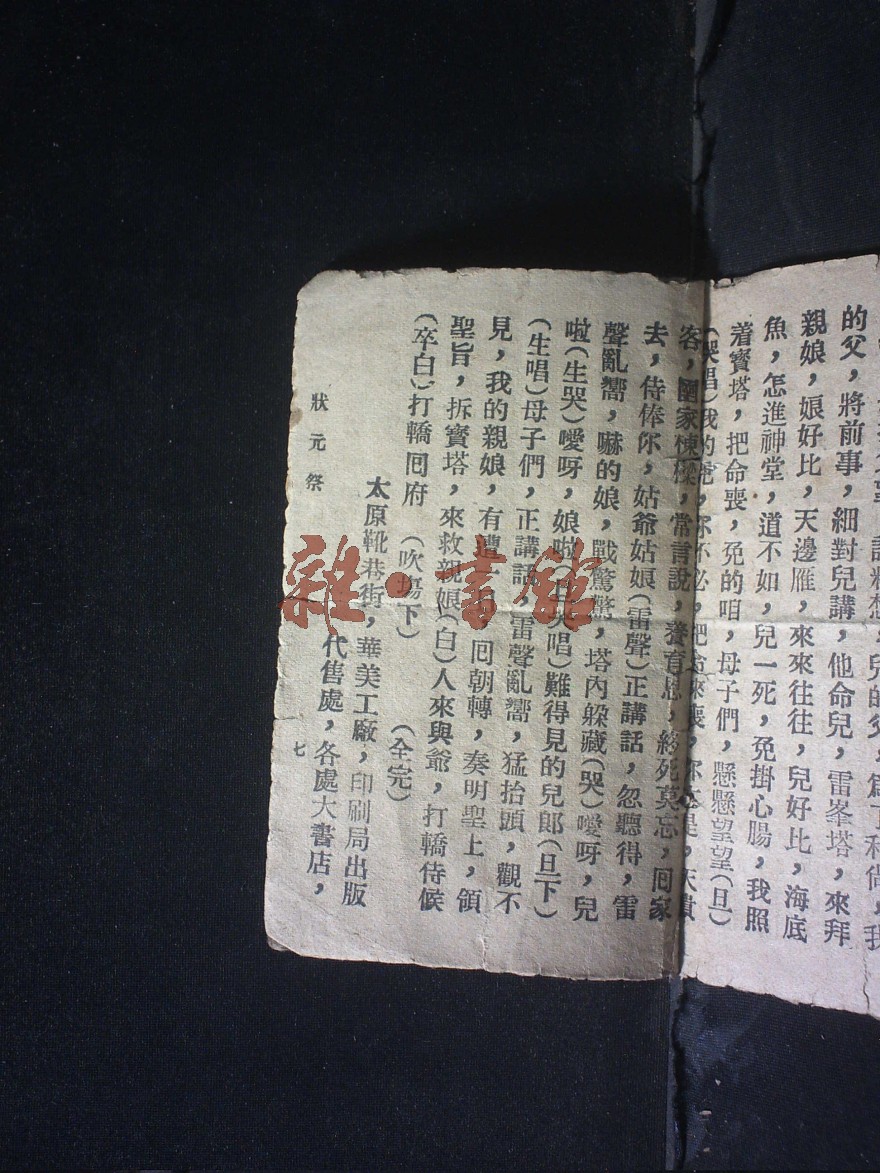 的父，將前事，細對兒講，他命兒，雷峯塔，來拜
親娘，娘好比，天邊雁，來來往往，兒好比，海底
魚，怎進神堂，道不如，兒一死，免掛心腸，我照
着寶塔，把命喪，免的咱，母子們，懸懸望望（旦）
（哭唱）我的兒，你不必，把命來喪，你
客，國家棟樑，常言說，養育恩，終死莫忘，囘家
去，侍俸你，姑爺姑娘（雷聲）正講話，忽聽得，雷
聲亂嚮，嚇的娘，戰驚驚，塔內躲藏（哭）噯呀，兒
啦（生哭）噯呀，娘啦（旦哭唱）難得見的兒郎（旦下）
（生唱）母子們，正講話，雷聲亂嚮，猛抬頭，觀不
見，我的親娘，有遭一日，囘朝轉，奏明聖上，領
聖旨，拆寶塔，來救親娘（白）人來與爺，打轎侍候
（卒白）打轎囘府　（吹塲下）　（全完）
太原靴巷街，華美工廠，印刷局出版
代售處，各處大書店，
狀元祭　七
雜·書館